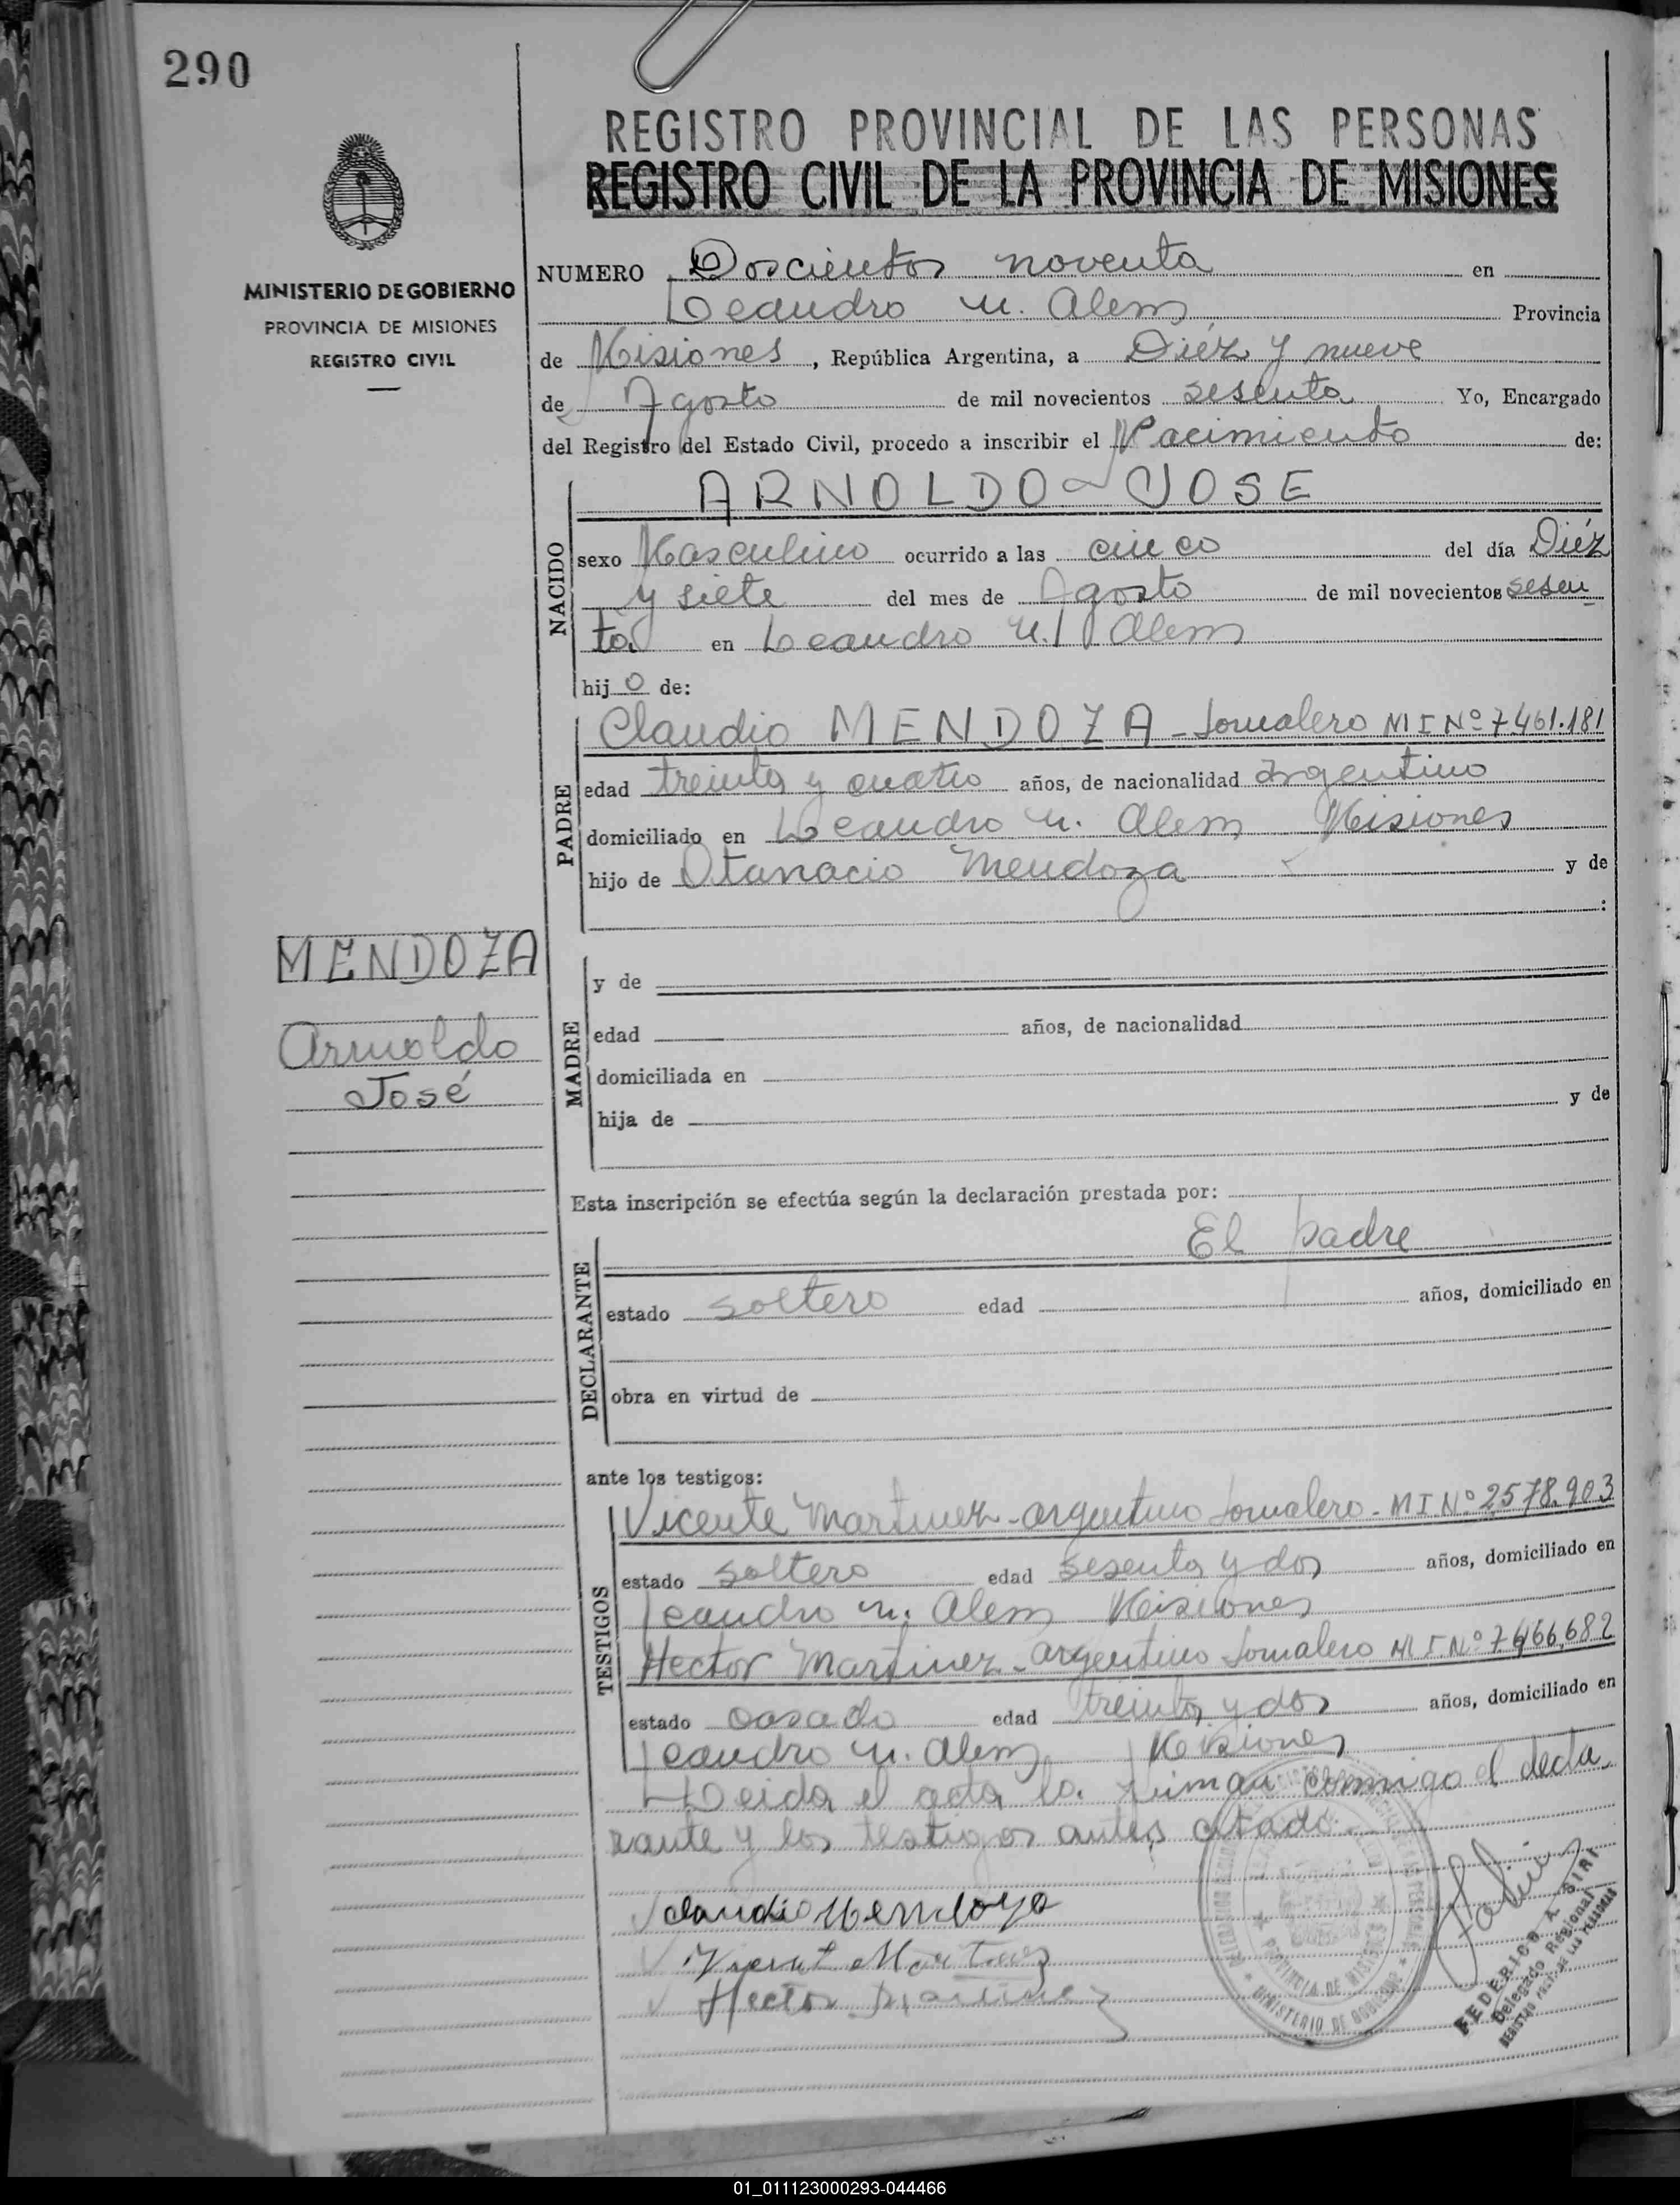 290
REGISTRO PROVINCIAL DE LAS PERSONAS
REGISTRO CIVIL DE LA PROVINCIA DE MISIONES
MINISTERIO DE GOBIERNO
PROVINCIA DE MISIONES
REGISTRO CIVIL
NUMERO Doscientos noventa en
Leandro N. Alem Provincia
de Misiones, República Argentina, a Diéz y nueve
de Agosto de mil novecientos sesenta Yo, Encargado
del Registro del Estado Civil, procedo a inscribir el Nacimiento de:
NACIDO
ARNOLDO - JOSE
sexo Masculino ocurrido a las cinco del día Diéz
y siete del mes de Agosto de mil novecientos sesen
ta en Leandro N. Alem
hij o de:
PADRE
Claudio MENDOZA - Jornalero MI Nº 7461.181
edad treinta y cuatro años, de nacionalidad argentino
domiciliado en Leandro N. Alem Misiones
hijo de Atanacio Mendoza y de
:
MENDOZA
Arnoldo
José
MADRE
y de
edad años, de nacionalidad
domiciliada en
hija de y de
Esta inscripción se efectúa según la declaración prestada por:
El padre
DECLARANTE
estado soltero edad años, domiciliado en
obra en virtud de
ante los testigos:
TESTIGOS
Vicente Martinez - argentino Jornalero - M I. Nº 2578.903
estado soltero edad sesenta y dos años, domiciliado en
Leandro N. Alem Misiones
Hector Martinez - argentino Jornalero M I. Nº 7466,682
estado casado edad treinta y dos años, domiciliado en
Leandro N. Alem, Misiones
Leida el acta la firman conmigo el decla
rante y los testigos antes citado
Claudio Mendoza
Vicente Martinez
Hector Martinez
PROVINCIA DE MISIONES
MINISTERIO DE GOBIERNO
FEDERICO A. SIRI
Delegado Regional
REGISTRO PROV. DE LAS PERSONAS
01_011123000293-044466